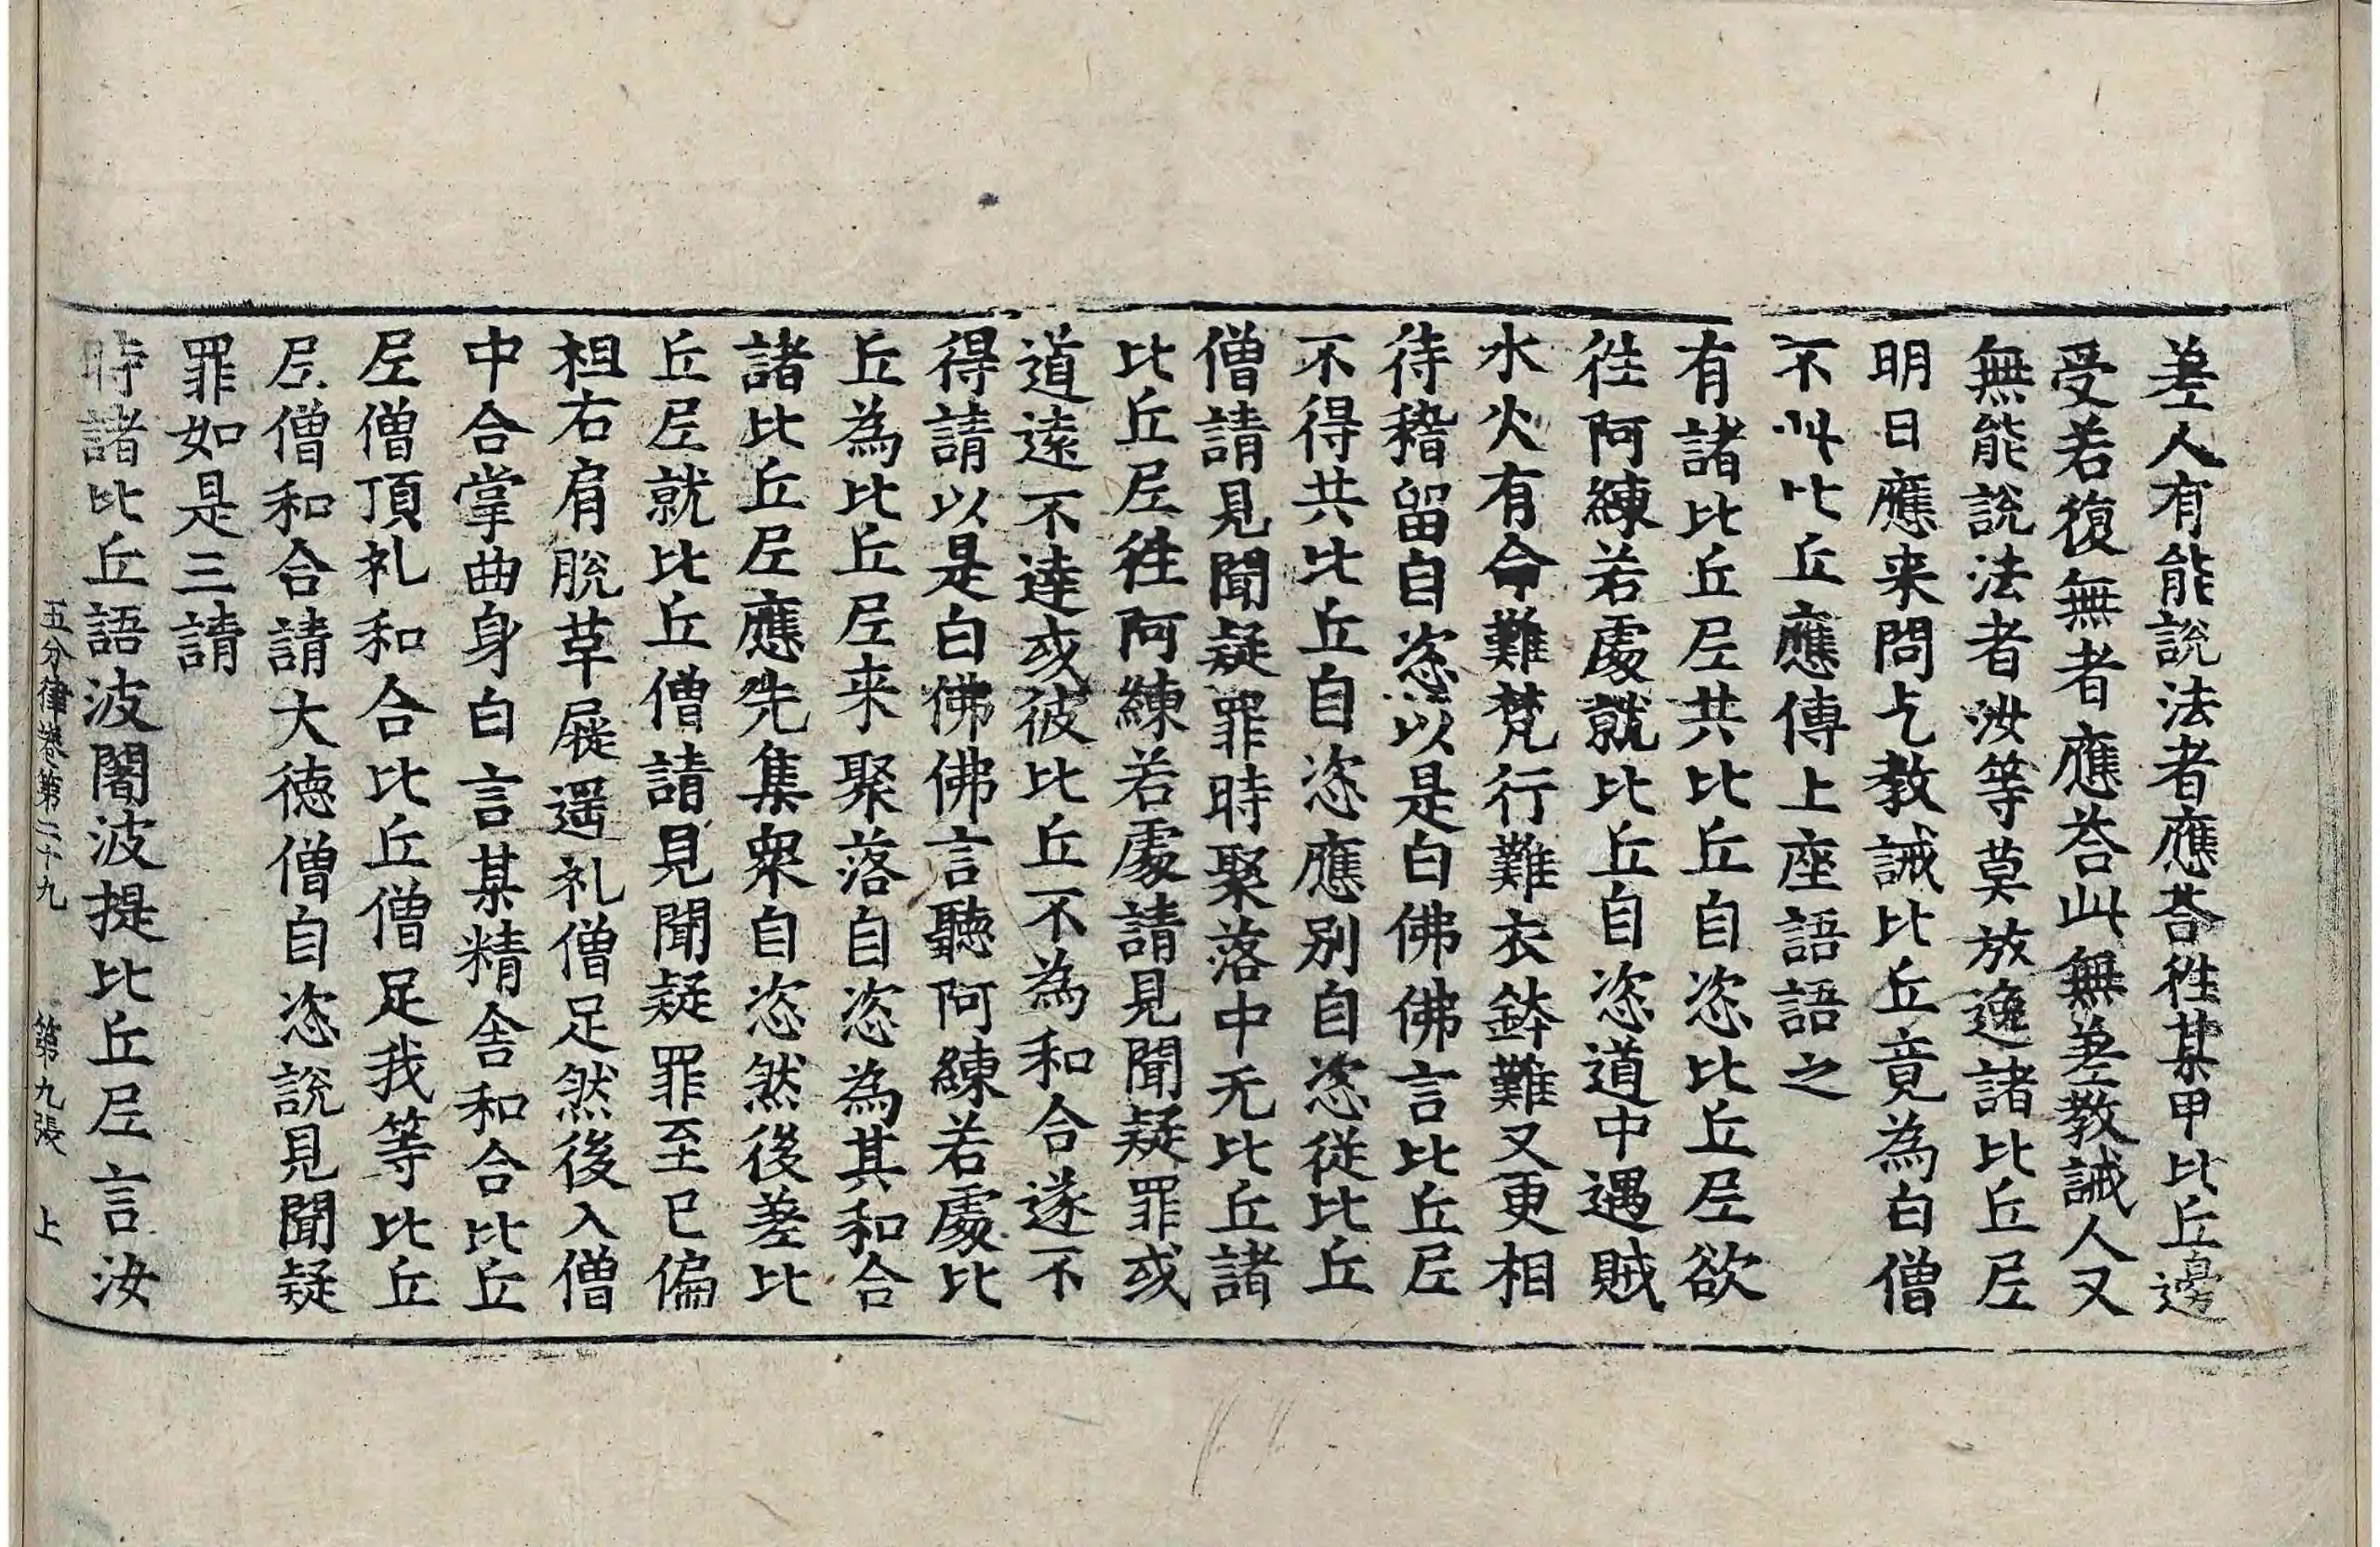 差人有能說法者應荅徃某甲比丘邊
受若復無者應荅此無差教誡人又
無能說法者汝等莫放逸諸比丘尼
明日應来問乞教誡比丘竟為白僧
不叫比丘應傳上座語語之
有諸比丘尼共比丘自恣比丘尼欲
徃阿練若處就比丘自恣道中遇賊
水火有命難梵行難衣鉢難又更相
待稽留自恣以是白佛佛言比丘尼
不得共比丘自恣應別自恣從比丘
僧請見聞疑罪時聚落中无比丘諸
比丘尼徃阿練若處請見聞疑罪或
道遠不達或彼比丘不為和合遂不
得請以是白佛佛言聽阿練若處比
丘為比丘尼来聚落自恣為其和合
諸比丘尼應先集眾自恣然後差比
丘尼就比丘僧請見聞疑罪至已偏
袒右肩脫草屣遥礼僧足然後入僧
中合掌曲身白言某精舍和合比丘
尼僧頂礼和合比丘僧足我等比丘
尼僧和合請大德僧自恣說見聞疑
罪如是三請
時諸比丘語波闍波提比丘尼言汝
五分律卷第二十九 第九張 上